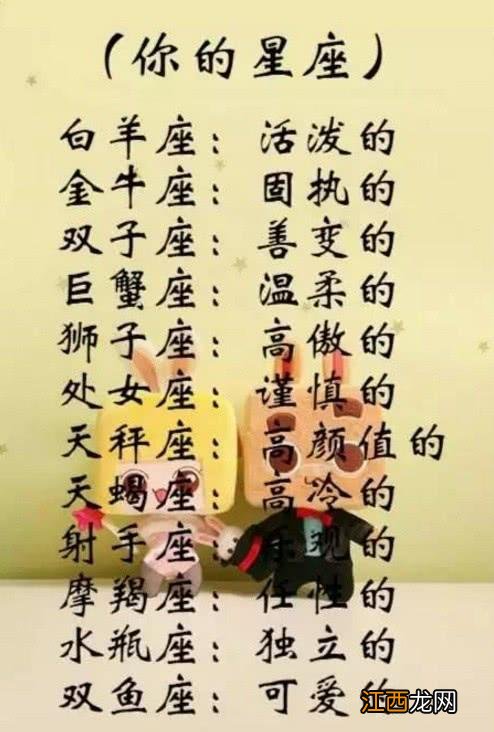 （你的星座）
白羊座：活泼的
金牛座：固执的
双子座：善变的
巨蟹座：温柔的
狮子座：高傲的
处女座：谨慎的
天秤座：高颜值的
天蝎座：高冷的
射手座：乐观的
摩羯座：任性的
水瓶座：独立的
双鱼座：可爱的
江西龙网